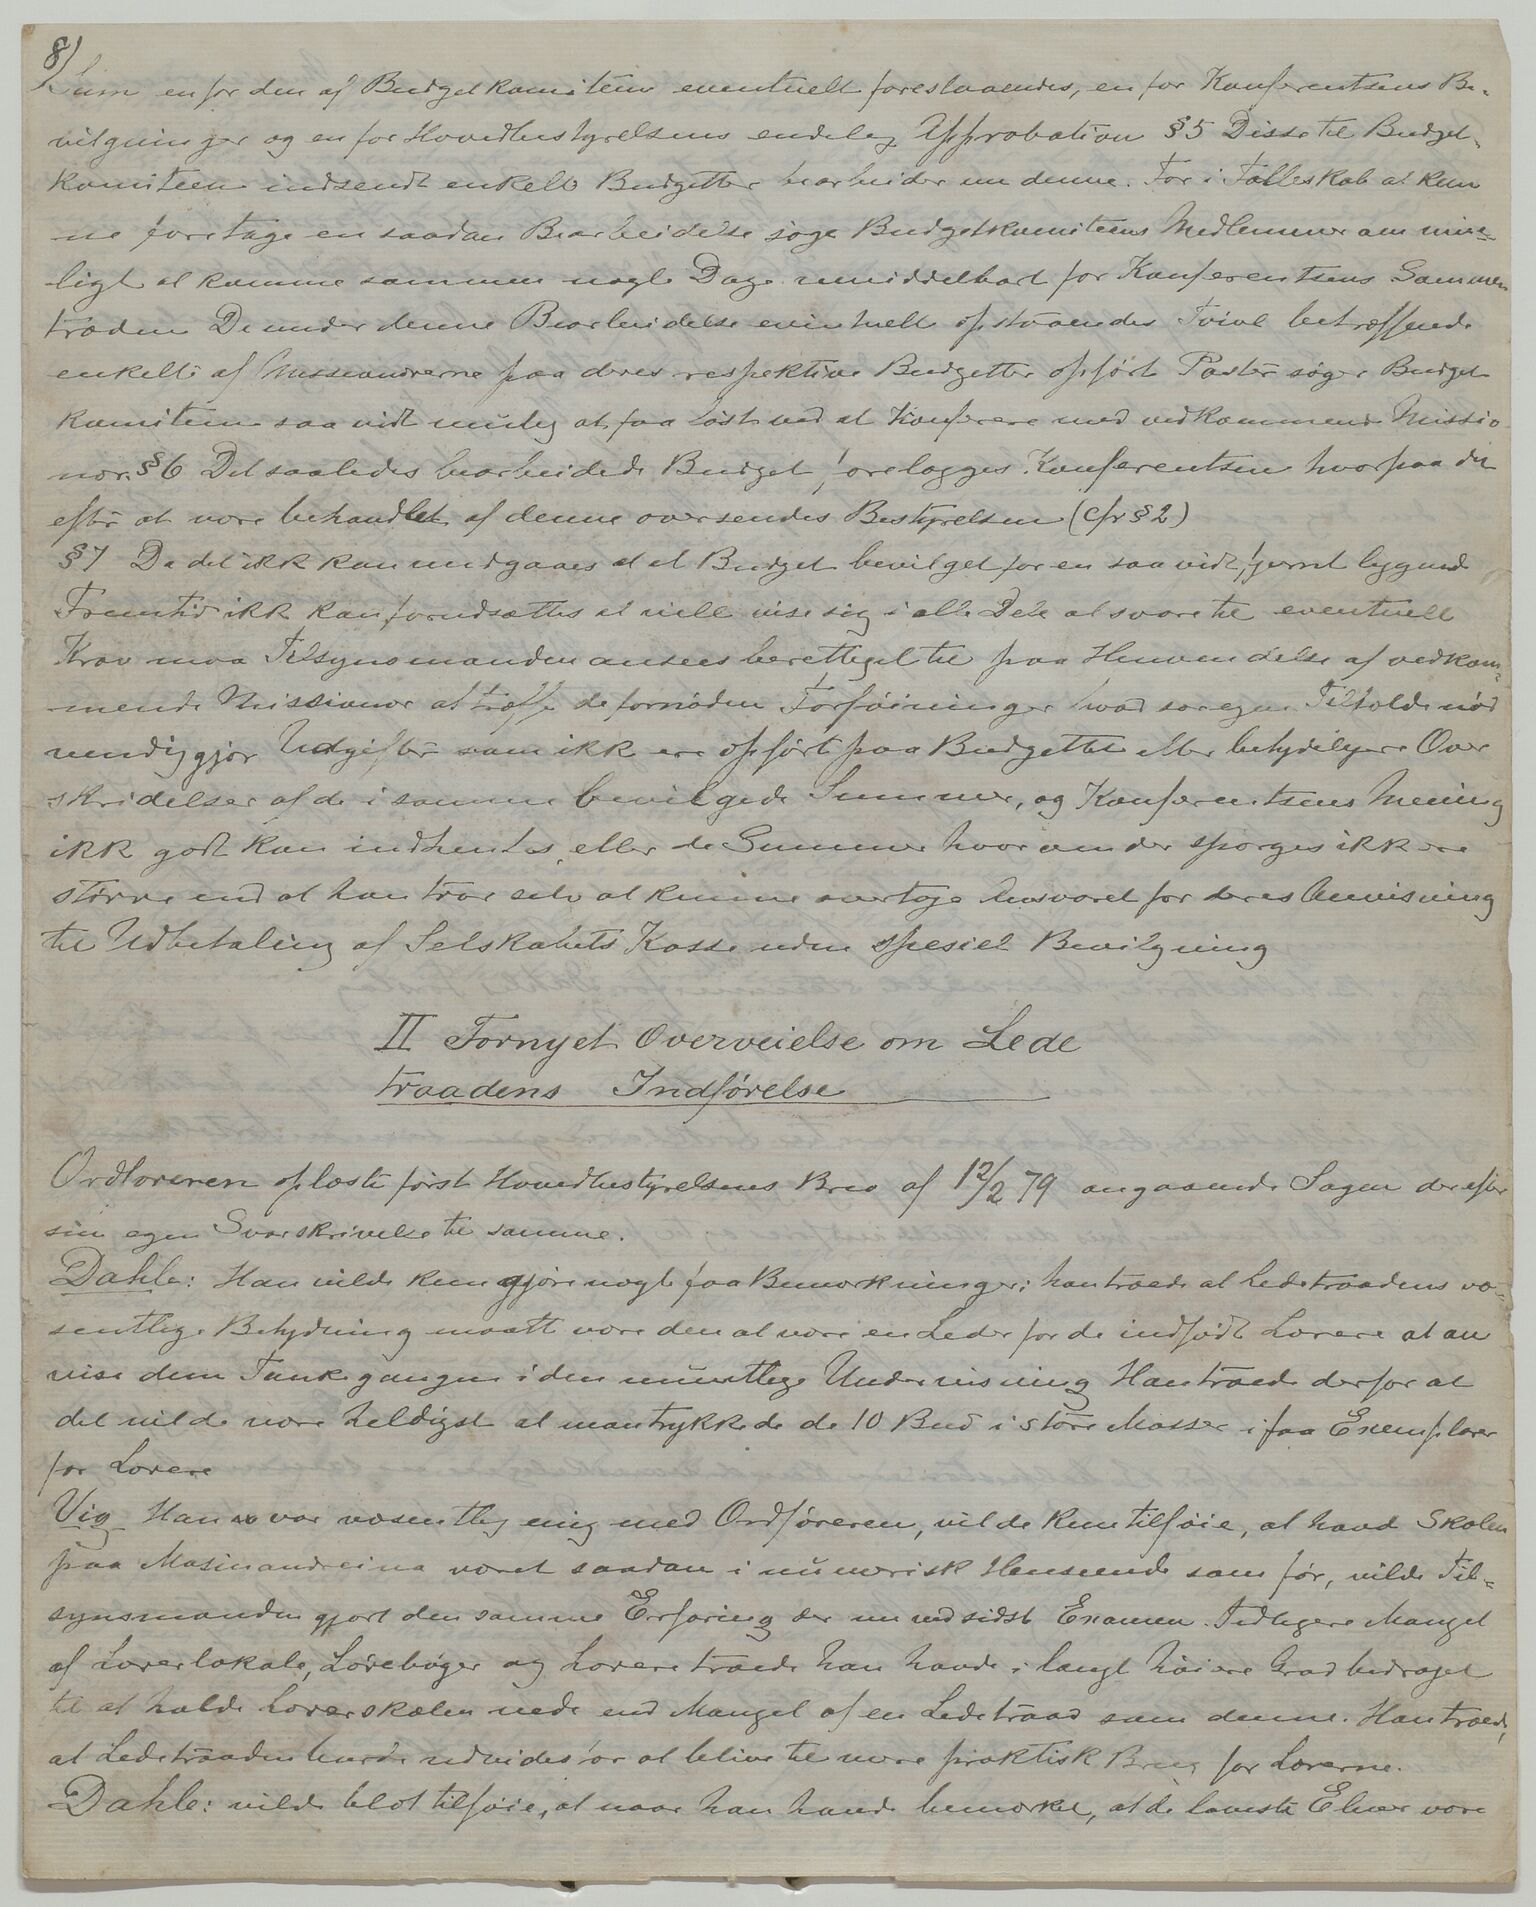 8)
Sum en for den af Budgetkomiteen eventuelt foreslaaendes, en for Konferentsens Be-
vilgninger og en for Hovedbestyrelsens endelig Approbation §5 Disse til Budget-
komiteen indsendt enkelt Budgetter bearbeider nu denne. For i Fælleskab at kun
ne foretage en saadan Bearbeidelse søge Budgetkomiteens Medlemmer om mu-
ligt at komme sammen nogle Dage umiddelbart før Konferentsens Sammen
træden De under denne Bearbeidelse eventuelt opstaaendes Tvivl betræffende
enkelte af Missionærerne paa deres respektive Budgetter opført Poster søger Budget
komiteen saa vidt mulig at faa løst ved at Konferere med vedkommende Missio
nær. §6 Det saaledes bearbeidede Budget forelægges Konferentsen hvorpaa det
efter at være behandlet af denne oversendes Bestyrelsen (cfr §2)
§7 Da det ikke kan undgaaes at et Budget bevilget for en saa vidt fjernt liggende
Fremtid ikke kan forudsættes at ville vise sig i alle Dele at svare til eventuell
Krav maa Tilsynsmanden ansees berettiget til paa Henvendelse af vedkom-
mende Missionær at træffe de fornøden Forføininger hvad særegne Tilfælde nød
vendiggjør Udgifter som ikke ere opført paa Budgettet eller betydeligere Over
skridelser af de i samme bevilgede Summer, og Konferentsens Mening
ikke godt kan indhentes, eller de Summer hvorom der spørges ikke ere
større end at han tror selv at kunne overtage Ansvaret for deres Anvisning
til Udbetaling af Selskabets Kasse uden spesiel Bevilgning
II Fornyet Overveielse om Lede
traadens Indførelse
Ordføreren oplæste først Hovedbestyrelsens Brev af 12/2 79 angaaende Sagen derefter
sin egen Svarskrivelse til samme.
Dahle: Han vilde kun gjøre nogle faa Bemærkninger; han troede at Ledetraadens væ-
sentlige Betydning maatte være den at være en Leder for de indfødt Lærere at an
vise dem Tankegangen i den muntlige Undervisning Han troede derfor at
det vilde være heldigst at man trykkede de 10 Bud i store Masser i faa Exemplarer
for Lærere
Vig Han var væsentlig enig med Ordføreren, vilde kun tilføie, at havd Skolen
paa Masinandreina været saadan i numerisk Henseende som før, vilde Til-
synsmanden gjort den samme Erfaring der nu ved sidst Examen. Tidligere Mangel
af Lærerlokale, Lærebøger og Lærere troede han havde i langt høiere Grad bidraget
til at holde Lærerskolen nede end Mangel af en Ledetraad som denne. Han troede,
at Ledetraaden burde udvides for at blive til mere praktisk Brug for Lærerne.
Dahle: vilde blot tilføie, at naar han havde bemærket, at de laveste Elever vare